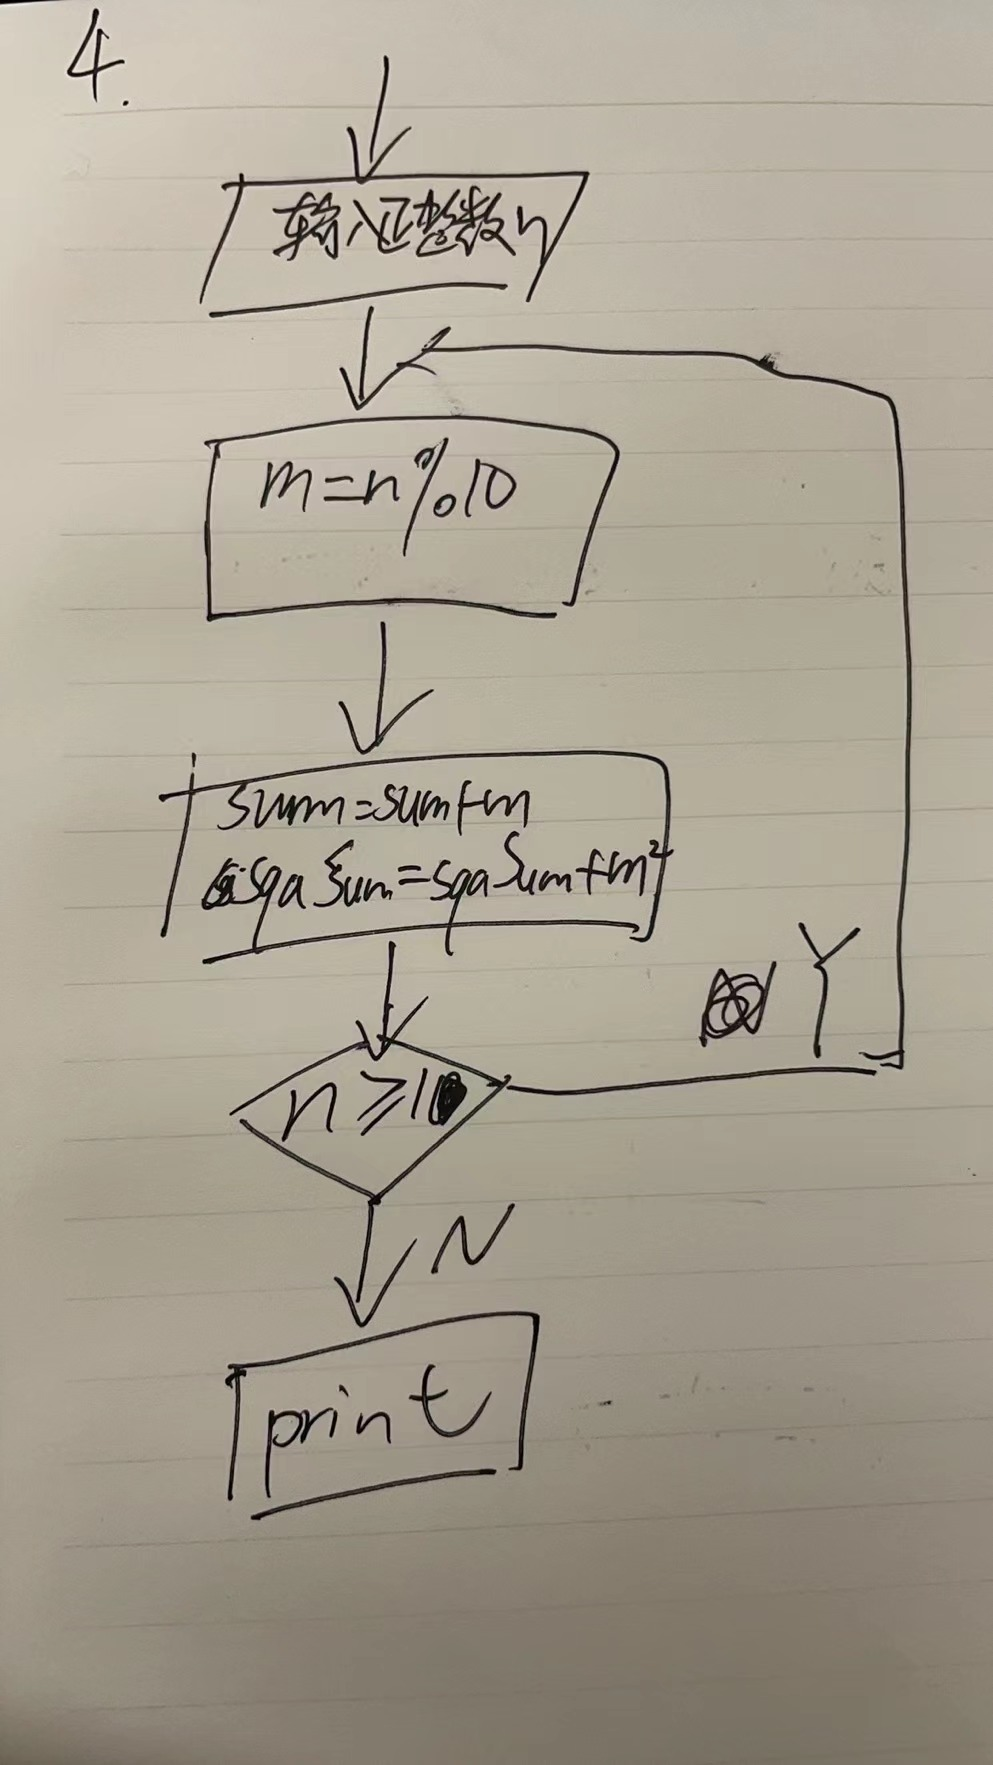 4.
输入正整数n
m=n%10
sum=sum+m
sqaSum=sqaSum+m²
Y
n≥10
N
print